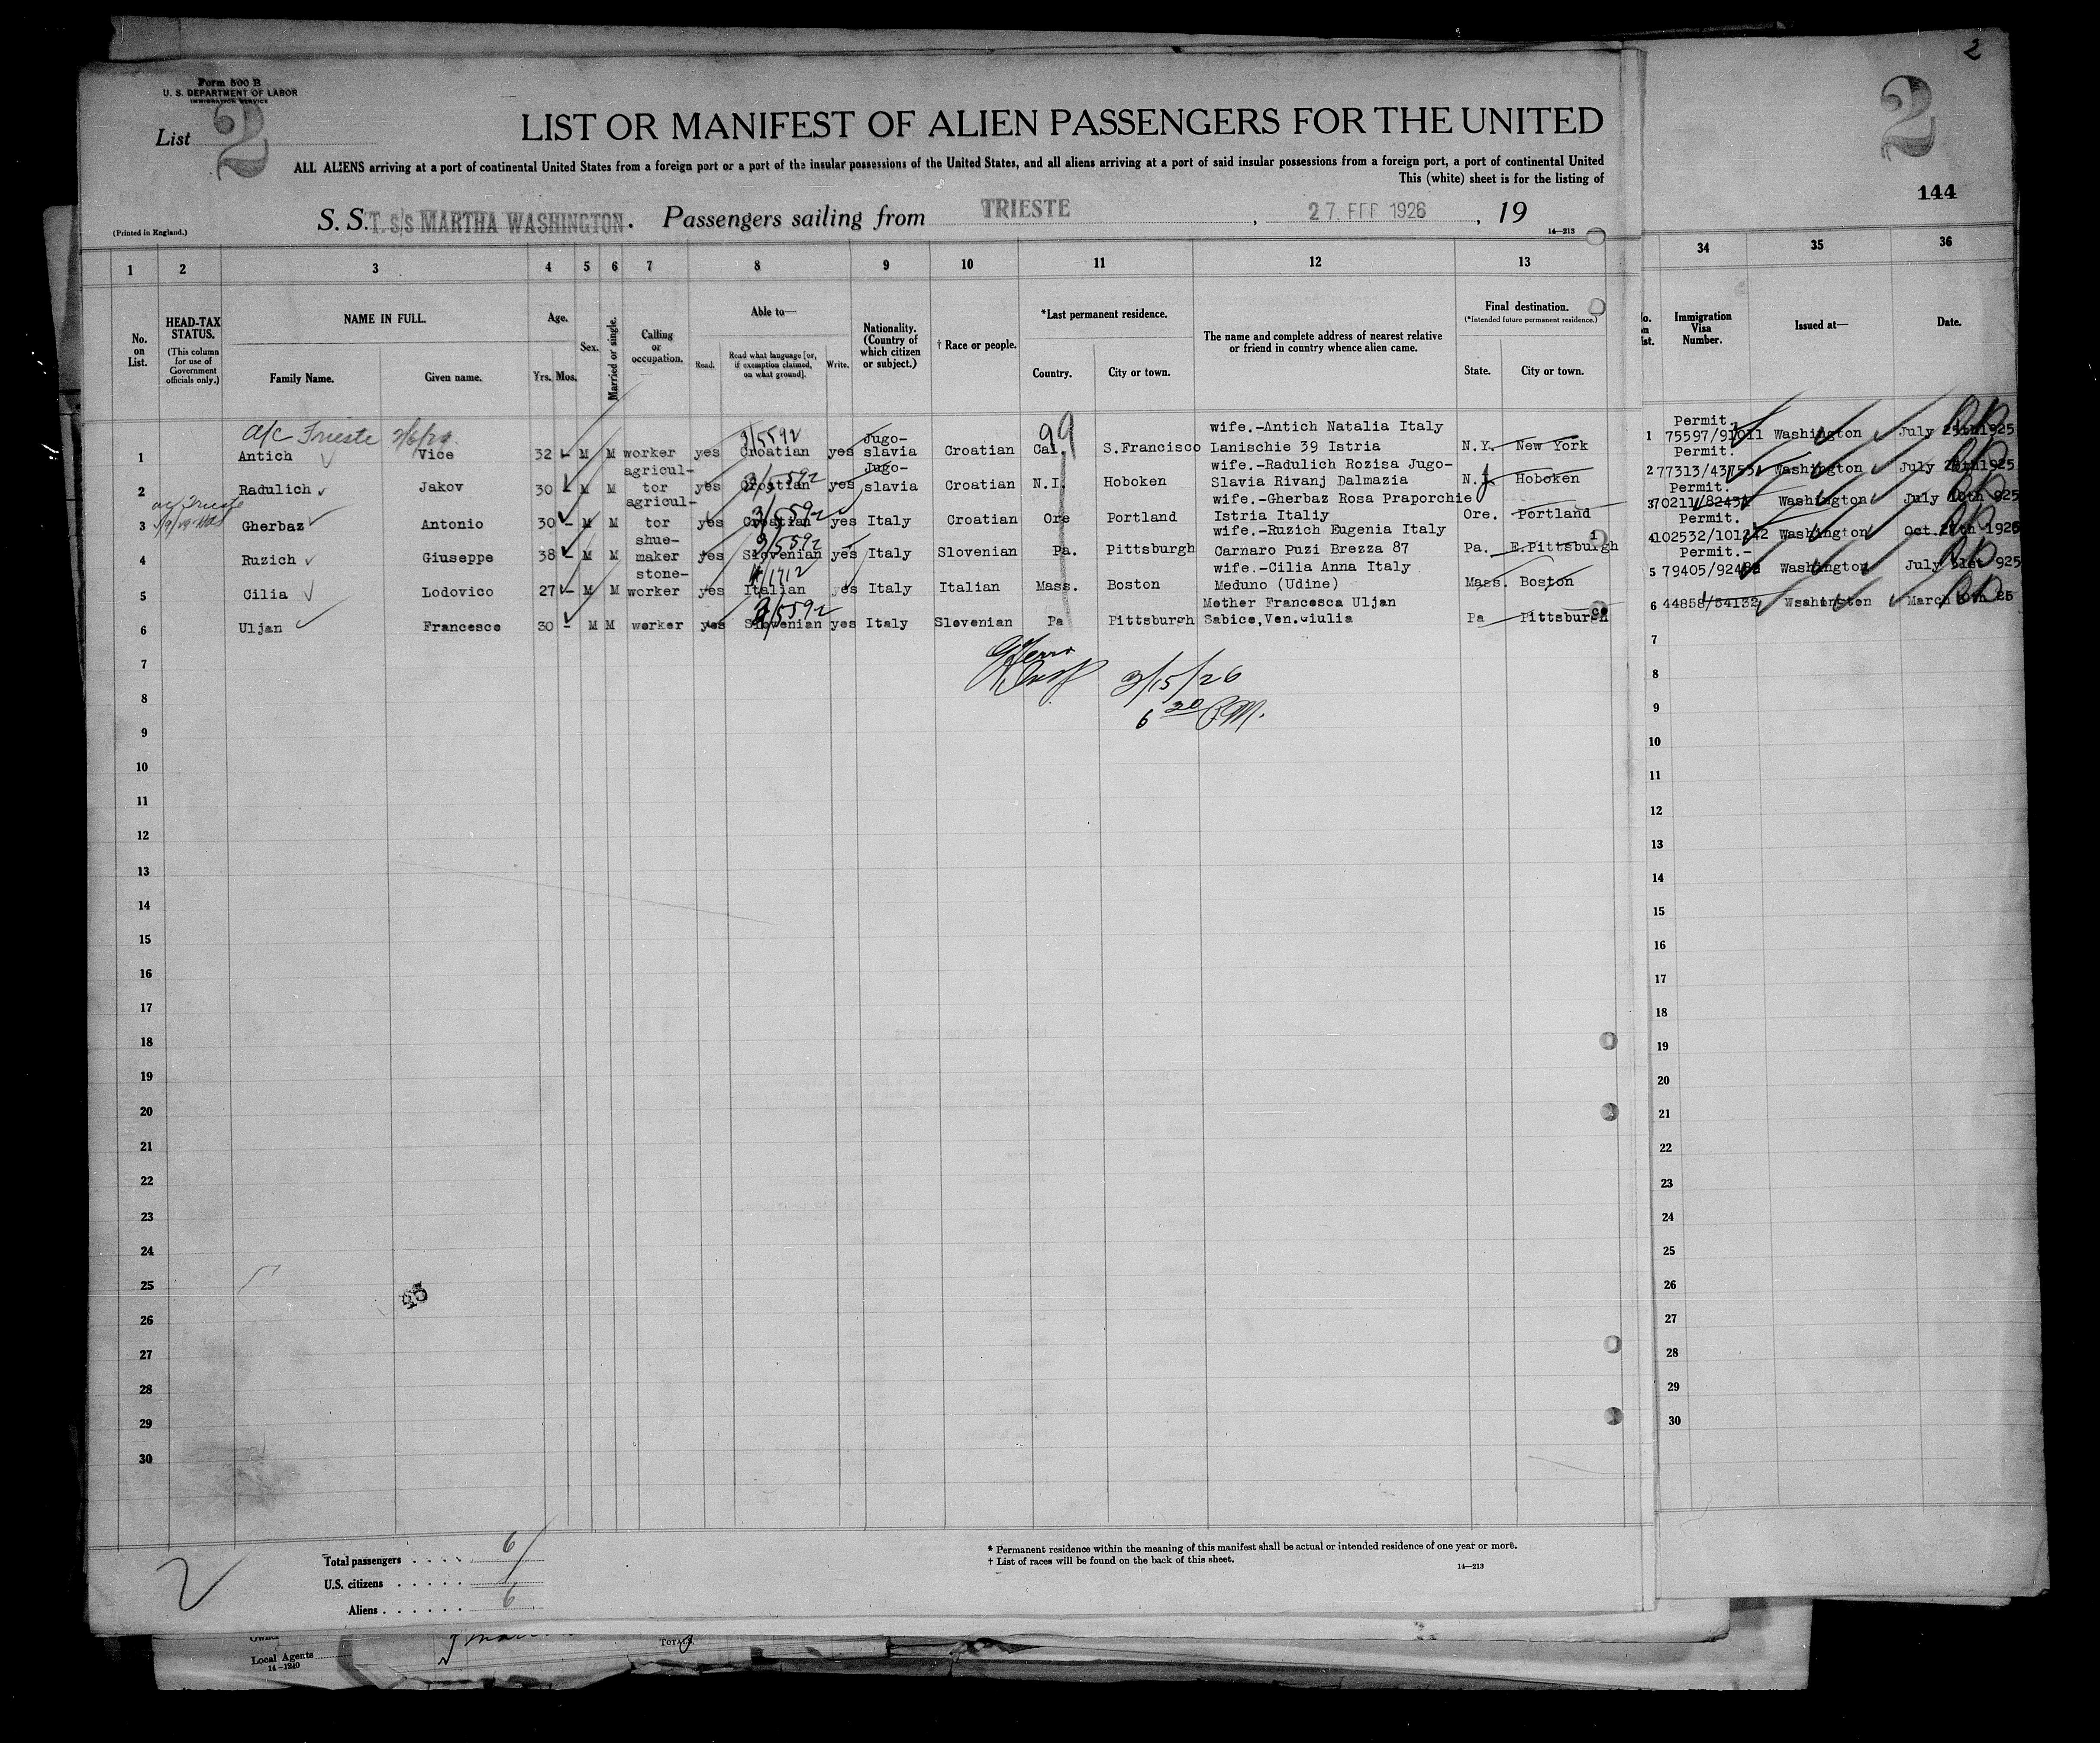 2
Form 500 B
U. S. DEPARTMENT OF LABOR
IMMIGRATION SERVICE
List 2
2
144
LIST OR MANIFEST OF ALIEN PASSENGERS FOR THE UNITED
ALL ALIENS arriving at a port of continental United States from a foreign port or a port of the insular possessions of the United States, and all aliens arriving at a port of said insular possessions from a foreign port, a port of continental United
This (white) sheet is for the listing of
S. S. T. s/s MARTHA WASHINGTON. Passengers sailing from TRIESTE, 27. FEB 1926, 19
(Printed in England.)
14—213
1 2 3 4 5 6 7 8 9 10 11 12 13 34 35 36
No. on List.
HEAD-TAX STATUS.
(This column for use of Government officials only.)
NAME IN FULL.
Family Name. Given name.
Age.
Yrs. Mos.
Sex.
Married or single.
Calling or occupation.
Able to—
Read. Read what language [or, if exemption claimed, on what ground]. Write.
Nationality. (Country of which citizen or subject.)
† Race or people.
*Last permanent residence.
Country. City or town.
The name and complete address of nearest relative or friend in country whence alien came.
Final destination.
(*Intended future permanent residence.)
State. City or town.
Immigration Visa Number.
Issued at—
Date.
a/c Trieste 99 wife.-Antich Natalia Italy Permit.
1 Antich Vice 32 - M M worker yes Croatian yes Jugo-slavia Croatian Cal. S.Francisco Lanischie 39 Istria N.Y. New York 1 75597/91011 Washington July 25th 1925
wife.-Radulich Rozisa Jugo- Permit.
2 Radulich Jakov 30 - M M agricul-tor yes Croatian yes Jugo-slavia Croatian N.I. Hoboken Slavia Rivanj Dalmazia N.J. Hoboken 2 Washington July 1925
a/c Trieste
wife.-Gherbaz Rosa Praporchie Permit.
3 Gherbaz Antonio 30 - M M agricul-tor yes Croatian yes Italy Croatian Ore Portland Istria Italiy Ore. Portland 3 Washington July 10th 925
wife.-Ruzich Eugenia Italy Permit.
4 Ruzich Giuseppe 38 - M M shue-maker yes Slovenian yes Italy Slovenian Pa. Pittsburgh Carnaro Puzi Brezza 87 Pa. E.Pittsburgh 4 Washington Oct. 1925
wife.-Cilia Anna Italy Permit.-
5 Cilia Lodovico 27 - M M stone-worker yes Italian yes Italy Italian Mass. Boston Meduno (Udine) Mass. Boston 5 Washington July 31st 925
Mother Francesca Uljan
6 Uljan Francesco 30 - M M worker yes Slovenian yes Italy Slovenian Pa Pittsburgh Sabice,Ven.Giulia Pa Pittsburgh 6 44858/54132 Washington March 25
3/15/26
6 20 P.M.
7 7
8 8
9 9
10 10
11 11
12 12
13 13
14 14
15 15
16 16
17 17
18 18
19 19
20 20
21 21
22 22
23 23
24 24
25 25
26 26
27 27
28 28
29 29
30 30
2
Total passengers . . . . 6
U.S. citizens . . . . . .
Aliens . . . . . . 6
* Permanent residence within the meaning of this manifest shall be actual or intended residence of one year or more.
† List of races will be found on the back of this sheet.
14—213
Owner
Local Agents
14—1240
TOTALS